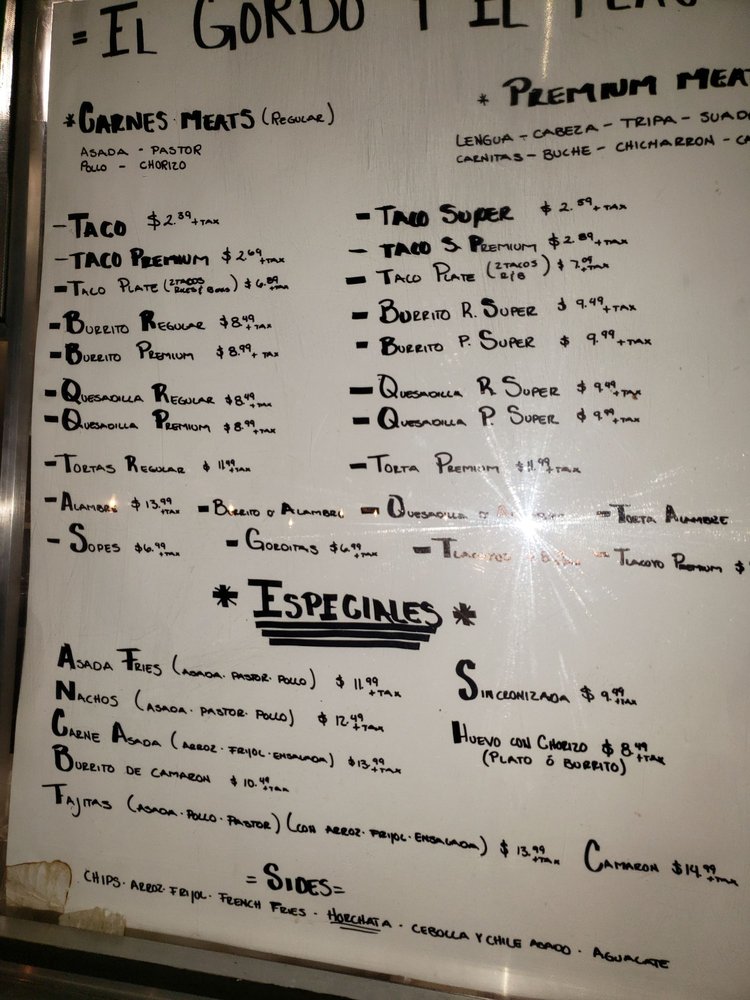 = EL GORDO Y EL
* CARNES MEATS (REGULAR)
ASADA - PASTOR
POLLO - CHORIZO
* PREMIUM
LENGUA - CABEZA - TRIPA -
CARNITAS - BUCHE - CHICHARRON -
- TACO $2.39 +TAX
- TACO PREMIUM $2.69 +TAX
- TACO PLATE (2 TACOS RICE & BEANS) $6.89 +TAX
- BURRITO REGULAR $8.49 +TAX
- BURRITO PREMIUM $8.99 + TAX
- QUESADILLA REGULAR $8.49 +TAX
- QUESADILLA PREMIUM $8.99 +TAX
- TORTAS REGULAR $11.99 +TAX
- TACO SUPER $2.59 +TAX
- TACO S. PREMIUM $2.89 +TAX
- TACO PLATE (2 TACOS R/B) $7.09 +TAX
- BURRITO R. SUPER $9.49 +TAX
- BURRITO P. SUPER $9.99 +TAX
- QUESADILLA R. SUPER $9.49 +TAX
- QUESADILLA P. SUPER $9.99 +TAX
- TORTA PREMIUM $11.99 +TAX
- ALAMBRE $13.99 +TAX - BURRITO O ALAMBRE - QUESADILLA O - TORTA ALAMBRE
- SOPES $6.99 +TAX - GORDITAS $6.99 +TAX - TLACOYOS - TLACOYO PREMIUM $
* ESPECIALES *
ASADA FRIES (ASADA · PASTOR · POLLO) $11.99 +TAX
NACHOS (ASADA · PASTOR · POLLO) $12.49 +TAX
CARNE ASADA (ARROZ · FRIJOL · ENSALADA) $13.99 +TAX
BURRITO DE CAMARON $10.49 +TAX
SINCRONIZADA $9.99 +TAX
HUEVO CON CHORIZO $8.49 +TAX
(PLATO Ó BURRITO)
FAJITAS (ASADA · POLLO · PASTOR) (CON ARROZ · FRIJOL · ENSALADA) $13.99 +TAX CAMARON $14.99 +TAX
= SIDES =
CHIPS · ARROZ · FRIJOL · FRENCH FRIES · HORCHATA · CEBOLLA Y CHILE ASADO · AGUACATE